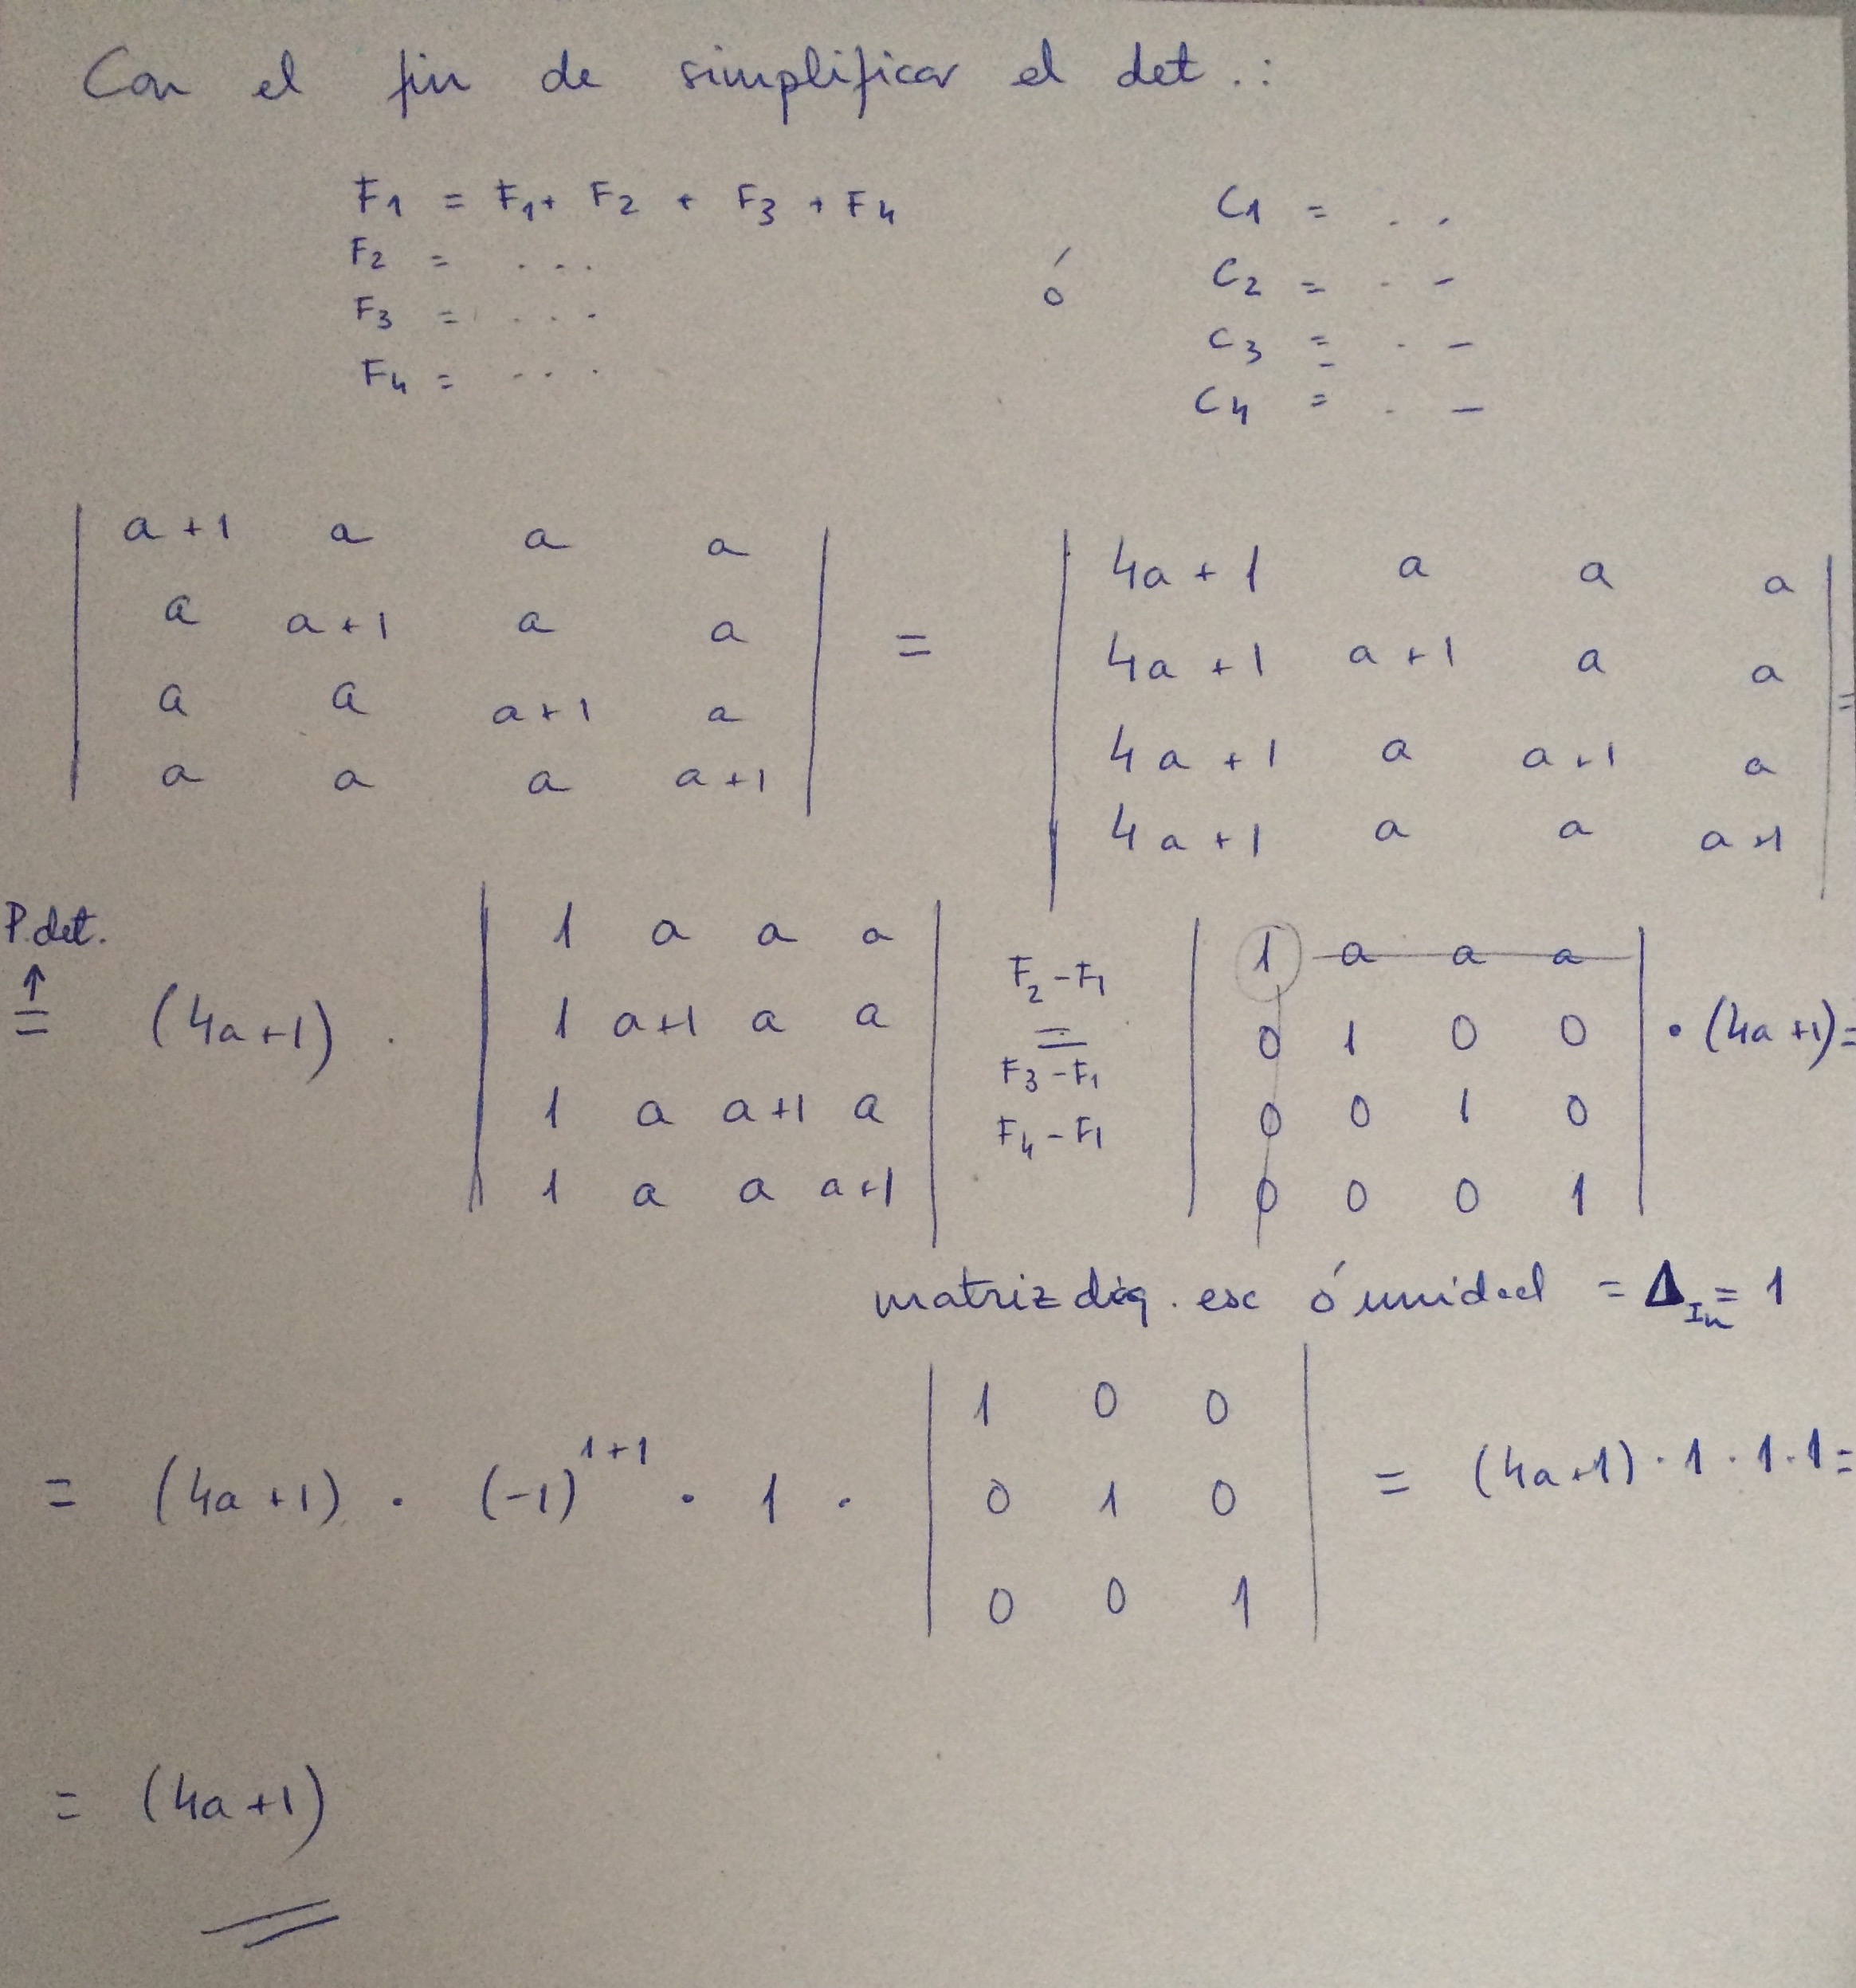 Con el fin de simplificar el det.:
F1 = F1+ F2 + F3 + F4
F2 = ...
F3 = ...
F4 = ...
ó
C1 = . .
C2 = . -
C3 = . -
C4 = . -
| a+1 a a a | = | 4a+1 a a a | =
| a a+1 a a | | 4a+1 a+1 a a |
| a a a+1 a | | 4a+1 a a+1 a |
| a a a a+1 | | 4a+1 a a a+1 |
P.det.
↑
= (4a+1) .
| 1 a a a |
| 1 a+1 a a |
| 1 a a+1 a |
| 1 a a a+1 |
F2-F1
=
F3-F1
F4-F1
| 1 a a a |
| 0 1 0 0 | · (4a+1)=
| 0 0 1 0 |
| 0 0 0 1 |
matriz diag. esc ó unidad = Δ In = 1
= (4a+1) · (-1)^1+1 · 1 ·
| 1 0 0 |
| 0 1 0 |
| 0 0 1 |
= (4a+1)·1·1·1=
= (4a+1)